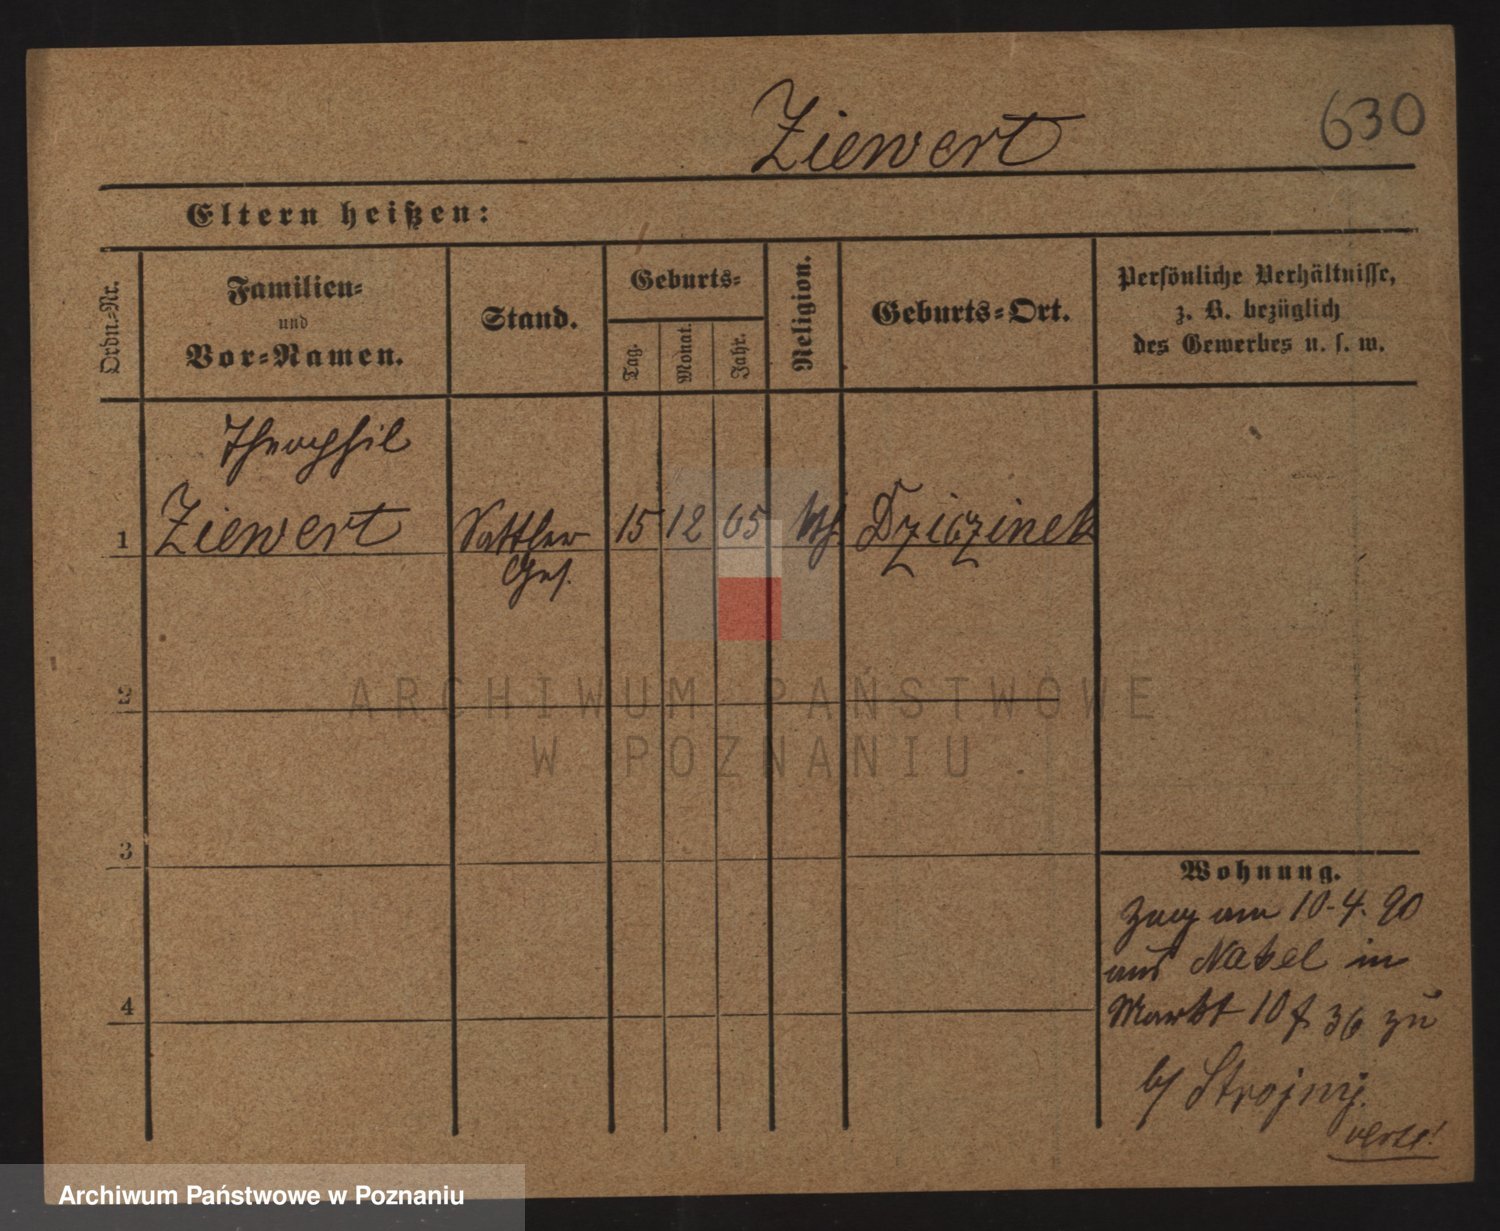 Ziewert
630
Eltern heißen:
Ordn.-Nr.
Familien-
und
Vor-Namen.
Stand.
Geburts-
Tag.
Monat.
Jahr.
Religion.
Geburts-Ort.
Persönliche Verhältnisse,
z. B. bezüglich
des Gewerbes u. s. w.
Theophil
1 Ziewert Sattler 15 12 65 kth. Dziczinek
Ges.
2
ARCHIWUM PAŃSTWOWE
W POZNANIU
3
Wohnung.
Zuzug am 10-4-90
aus Nakel in
4
Markt 10 f 36 zu
b/ Strojny.
verte!
Archiwum Państwowe w Poznaniu